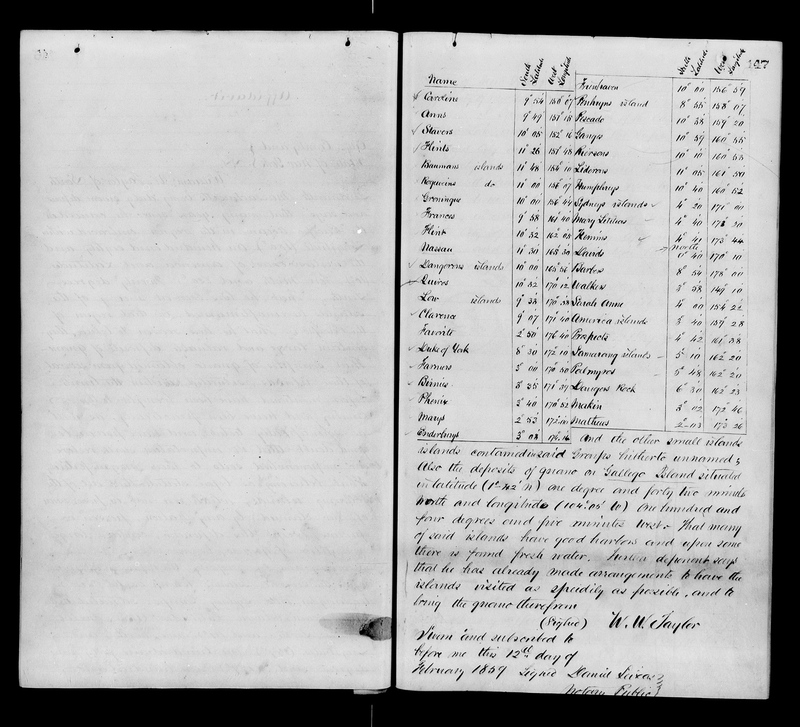 147
Name South Latitude West Longitude South Latitude West Longitude
Caroline 9° 54 150° 07 Frienhaven 10° 00 156° 59
Anns 9° 49 151° 18 Penhryns island 8° 55 158° 07
Stavers 10° 05 152° 16 Pescado 10° 38 159° 20
Flints 11° 26 151° 48 Ganges 10° 59 160° 55
Baumans islands 11° 48 154° 10 Riersons 10° 10 160° 53
Rogueins do 11° 00 156° 07 Lidorons 11° 05 161° 50
Groningue 10° 00 156° 44 Humphreys 10° 40 160° 52
Frances 9° 58 161° 40 Sydneys islands 4° 20 171° 00
Flint 10° 32 162° 05 Mary Letitias 4° 40 173° 20
Nassau 11° 30 165° 30 Kemins 4° 41 173° 44
Dangerous islands 10° 00 165° 56 Davids north 0° 40 170° 10
Quiros 10° 32 170° 12 Barbes 8° 54 178° 00
Low islands 9° 33 170° 38 Walkers 3° 58 149° 10
Clarence 9° 07 171° 40 Sarah Anne 4° 00 154° 22
Favorite 2° 50 176° 40 America islands 3° 40 159° 28
Duke of York 8° 30 172° 10 Prospects 4° 42 161° 38
Farmers 3° 00 170° 50 Samarang islands 5° 10 162° 20
Birnies 3° 35 171° 39 Palmyros 5° 48 162° 20
Phenix 3° 40 170° 52 Dangers Rock 6° 30 162° 23
Marys 2° 53 172° 00 Makin 3° 02 172° 46
Enderburys 3° 08 174° 14 Mathews 2° 03 173° 26
And the other small islands
islands contained in said Groups hitherto unnamed;
Also the deposits of guano on Gallego Island situated
in latitude (1° 42' N) one degree and forty two minutes
North and longitude (104° 05' W) One hundred and
four degrees and five minutes West. That many
of said islands have good harbors and upon some
there is found fresh water. Further deponent says
that he has already made arrangements to have the
islands visited as speedily as possible, and to
bring the guano therefrom
(Signed) W. W. Taylor
Sworn and subscribed to
before me this 12th day of
February 1859 Signed Daniel Seixas
Notary Public